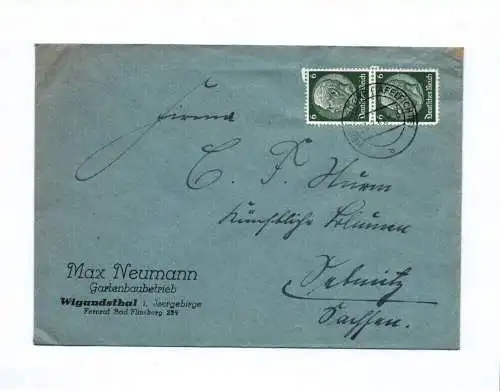 6 Deutsches Reich 6
6 Deutsches Reich 6
Firma
C. F. Sturm
Künstliche Blumen
Sebnitz
Sachsen.
Max Neumann
Gartenbaubetrieb
Wigandsthal i. Isergebirge
Fernruf Bad Flinsberg 294